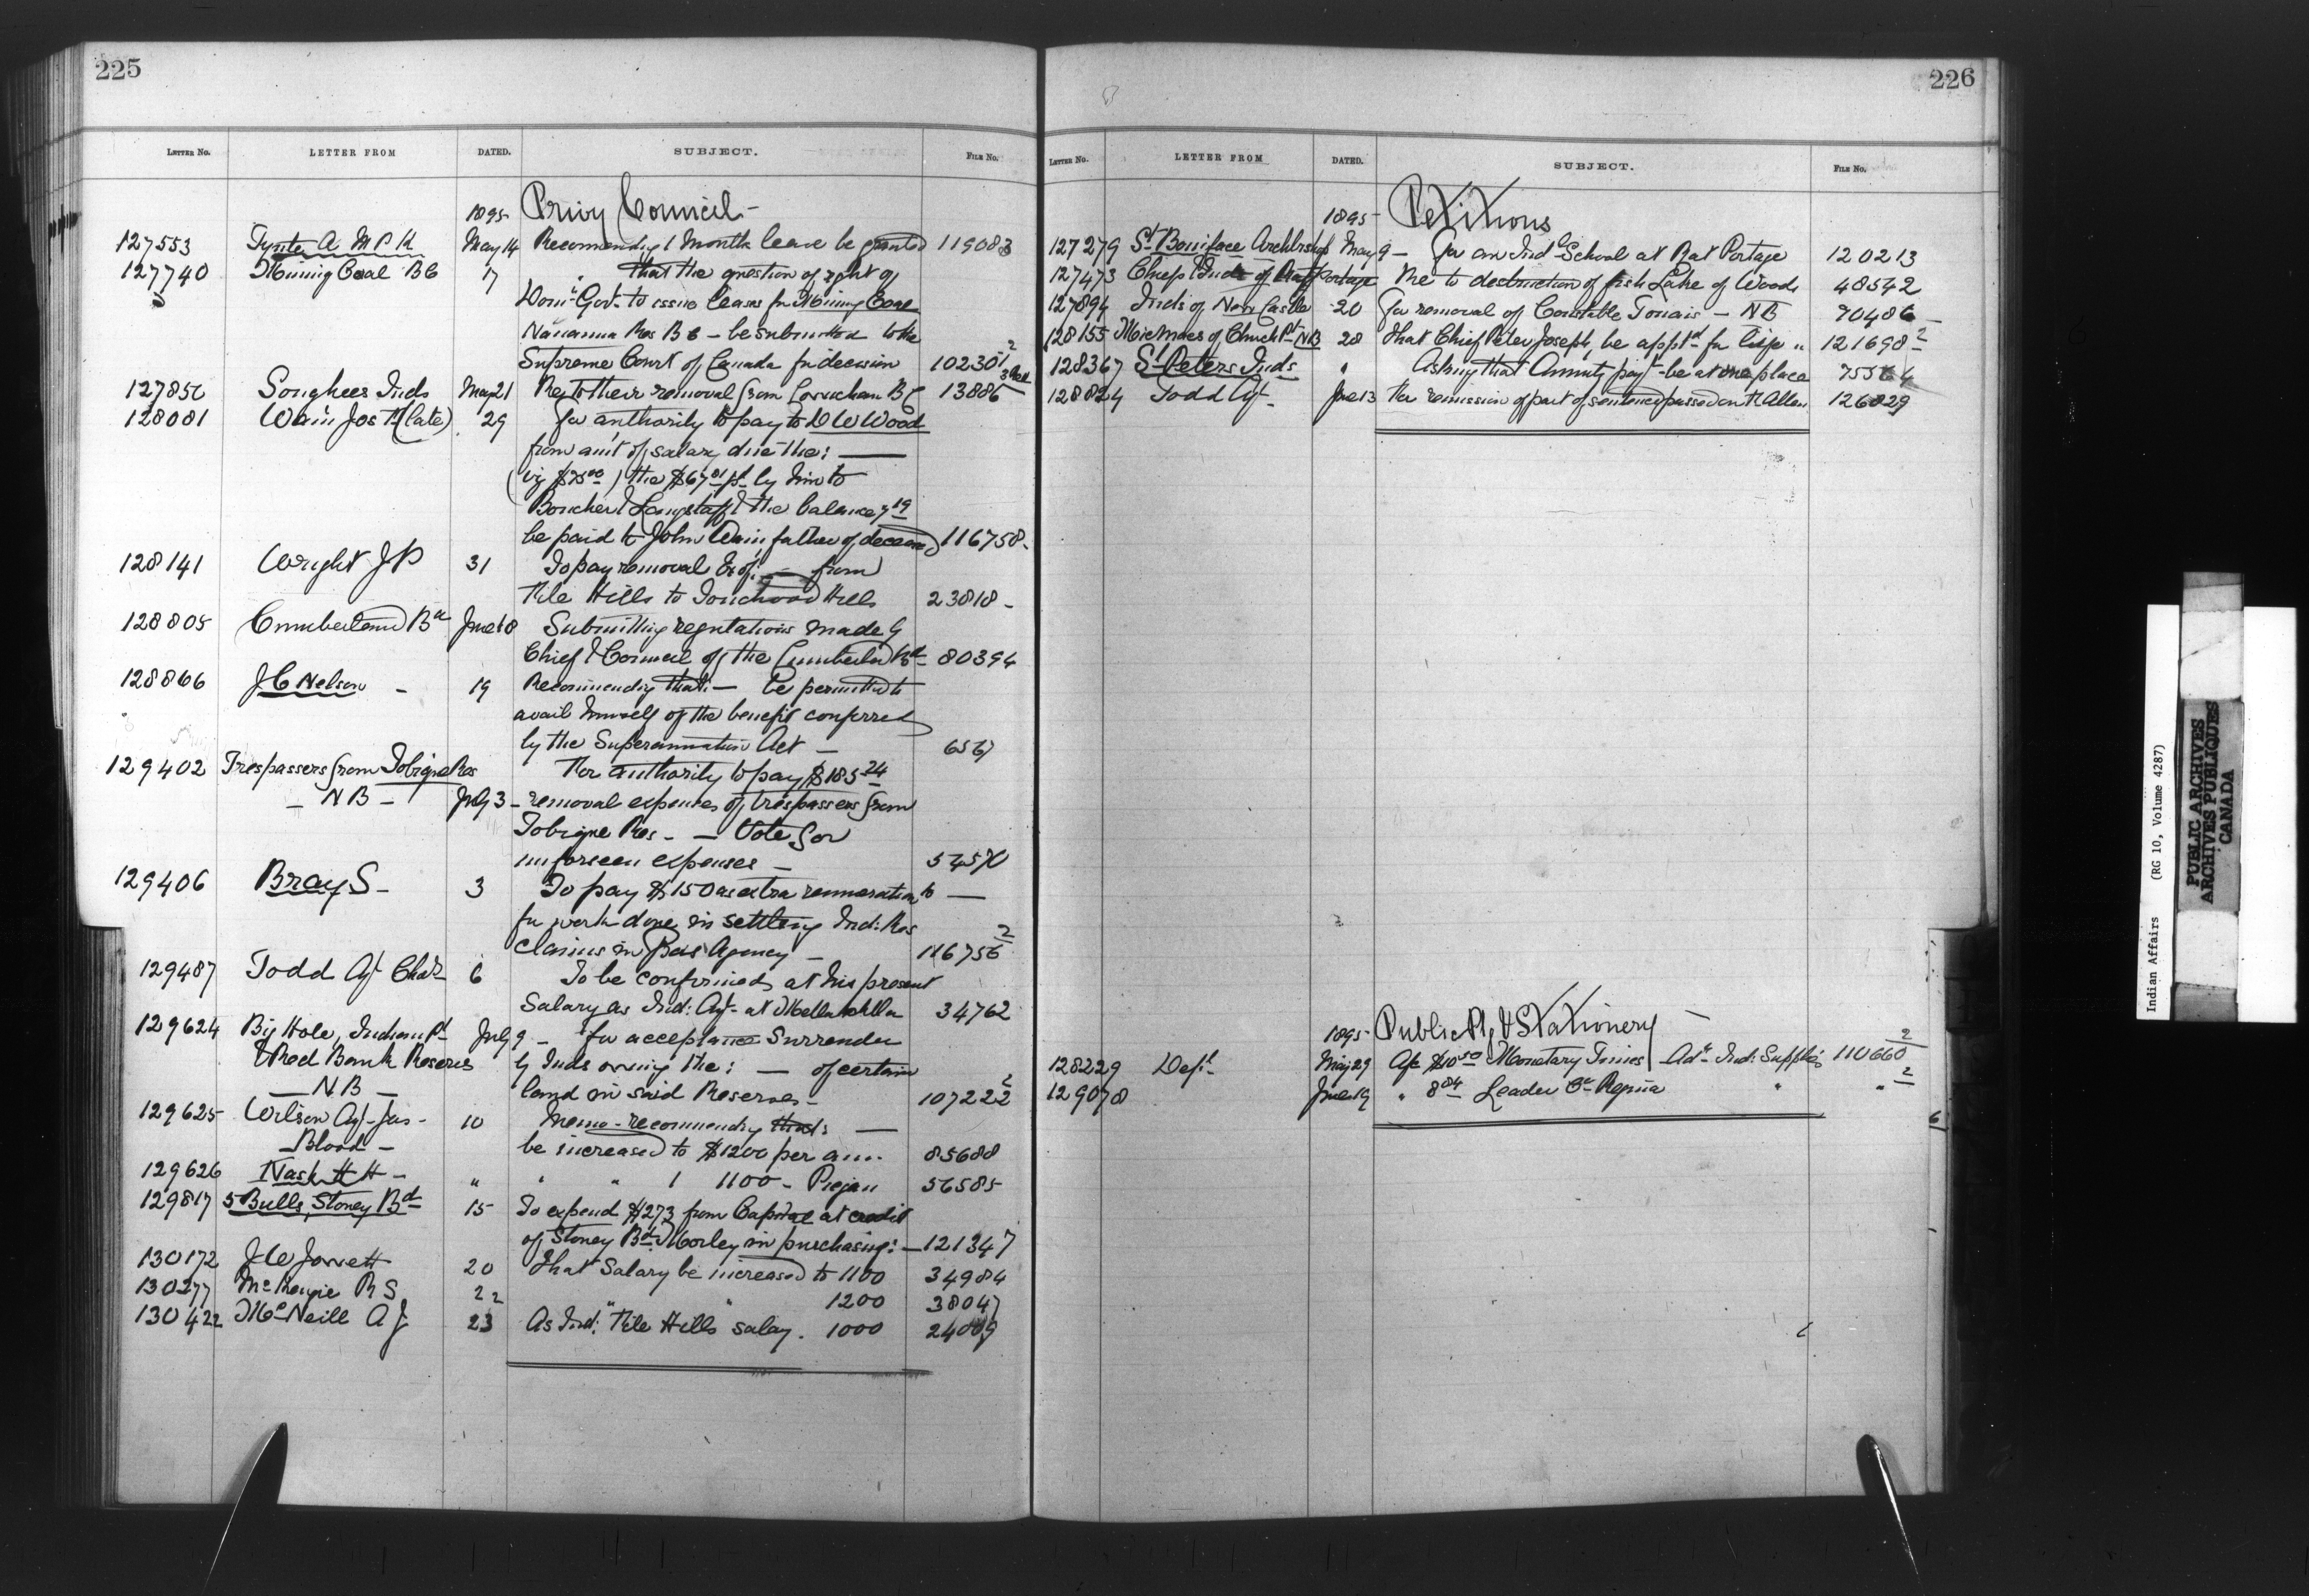 225
LETTER No. LETTER FROM DATED. SUBJECT. FILE No.
1895 Privy Council -
127553 Tyrite A M P K May 14 Recommendg 1 Months leave be granted 119083
127740 Mining Coal B C 17 " that the question of right of
Dom: Govt to issue leases for Mining Coal
Res B C - be submitted to the
Supreme Court of Canada for decision 102301 2
127850 Songhees Inds May 21 Re to their removal from B C 13886
128081 Wain Jos H (late) 29 For authority to pay to D W Wood
from amt of salary due the: —
(viz $75.00) the $67.81 pd by him to
Boucher & Longstaff & the balance 7.19
be paid to John Wain, father of deceased 116758 -
128141 Wright J P 31 To pay removal Ex of: — from
File Hills to Touchwood Hills 23818 -
128805 Cumberland Bd June 18 Submitting regulations made by
Chief & Council of the Cumberland Bd 80394
128866 J C Nelson - 19 Recommending that: — be permitted to
avail himself of the benefit conferred
by the Superannuation Act - 6567
129402 Trespassers from Tobique Res For authority to pay $185.24
- N B - July 3 - removal expenses of trespassers from
Tobique Res - — Vote for
unforseen expenses - 54570
129406 Bray S - 3 To pay $150 as extra remuneration to —
for work done in settling Ind: Res
claims in Agency - 116756 2
129487 Todd Agt Chas 6 To be confirmed at his present
Salary as Ind: Agt - at Metlakahtla 34762
129624 Big Hole, Indian Pt July 9 - For acceptance Surrender
& Red Bank Reserves by Inds owning the: — of certain
- N B - land in said Reserves - 107222 2
129625 Wilson Agt - Jas - 10 Memo - recommending that: —
Blood - be increased to $1200 per ann. 85688
129626 Nash H H - " " " 1100 - Piegan 56585
129817 5 Bulls, Stoney Bd 15 To expend $273 from Capital at credit
of Stoney Bd Morley in purchasing: - 121347
130172 J W Jowett 20 That Salary be increased to 1100 34984
130277 McKenzie R S 22 " " 1200 38047
130422 McNeill A J 23 As Ind: "File Hills" salary. 1000 24009
226
LETTER No. LETTER FROM DATED. SUBJECT. FILE No.
1895 Petitions
127279 St Boniface Archbishop May 9 - For an Indl School at Rat Portage 120213
127473 Chiefs & Inds of Rat Portage Re to destruction of fish Lake of Woods 48542
127894 Inds of New Castle 20 For removal of Constable - NB 70486 -
128155 Micmacs of Church Pt NB 28 That Chief Peter Joseph, be apptd for life " 121698 2
128367 St Peters Inds " Asking that Annuity payt - be at one place 75564
128824 Todd Agt - June 13 For remission of part of sentence passed on Allen 126829
1895 Public Ptg & Stationery -
128229 Dept - May 29 Apr $10.50 Monetary Times Advg Ind: Supplies 110660 2
129078 June 19 " 8.84 Leader Co Regina " " 2
6
Indian Affairs (RG 10, Volume 4287)
PUBLIC ARCHIVES
ARCHIVES PUBLIQUES
CANADA